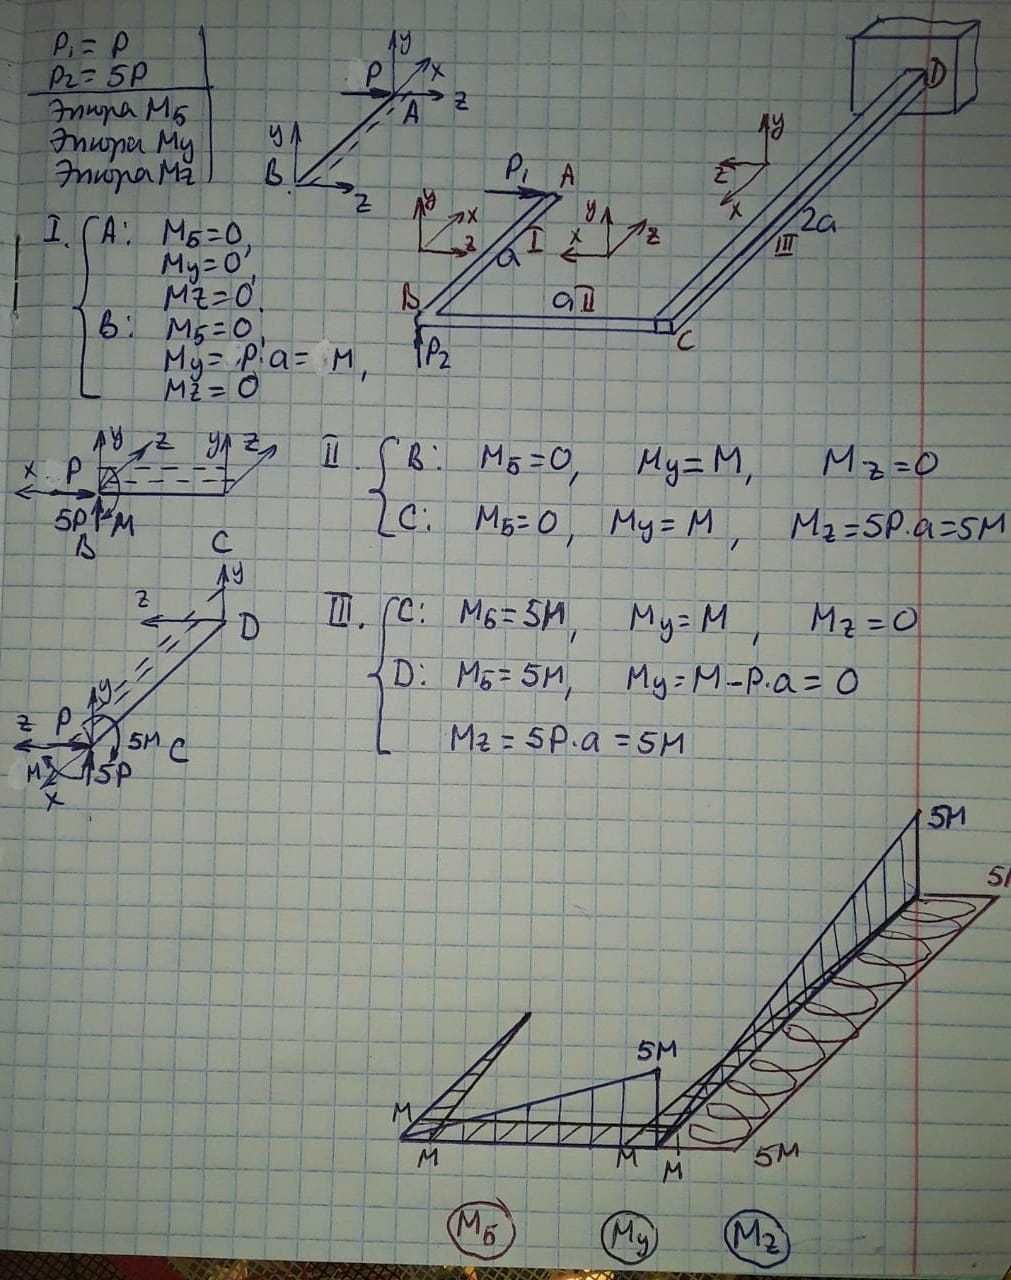 P₁ = P
P₂ = 5P
Эпюра Mб
Эпюра My
Эпюра Mz
y
x
P
z
A
y
B
z
D
P₁
A
y
x
z
a
I
y
x
z
y
z
x
2a
III
B
a II
C
P₂
I. A: Mб=0,
My=0,
Mz=0.
B: Mб=0,
My= P·a= M,
Mz=0
y z y z
x P
5P M
B C
II. B: Mб=0, My=M, Mz=0
C: Mб=0, My=M, Mz=5P·a=5M
y
z
D
y
z P
5M C
M 5P
x
III. C: Mб=5M, My=M, Mz=0
D: Mб=5M, My=M-P·a=0
Mz=5P·a=5M
5M
5M
M
M
M
M
5M
Mб My Mz